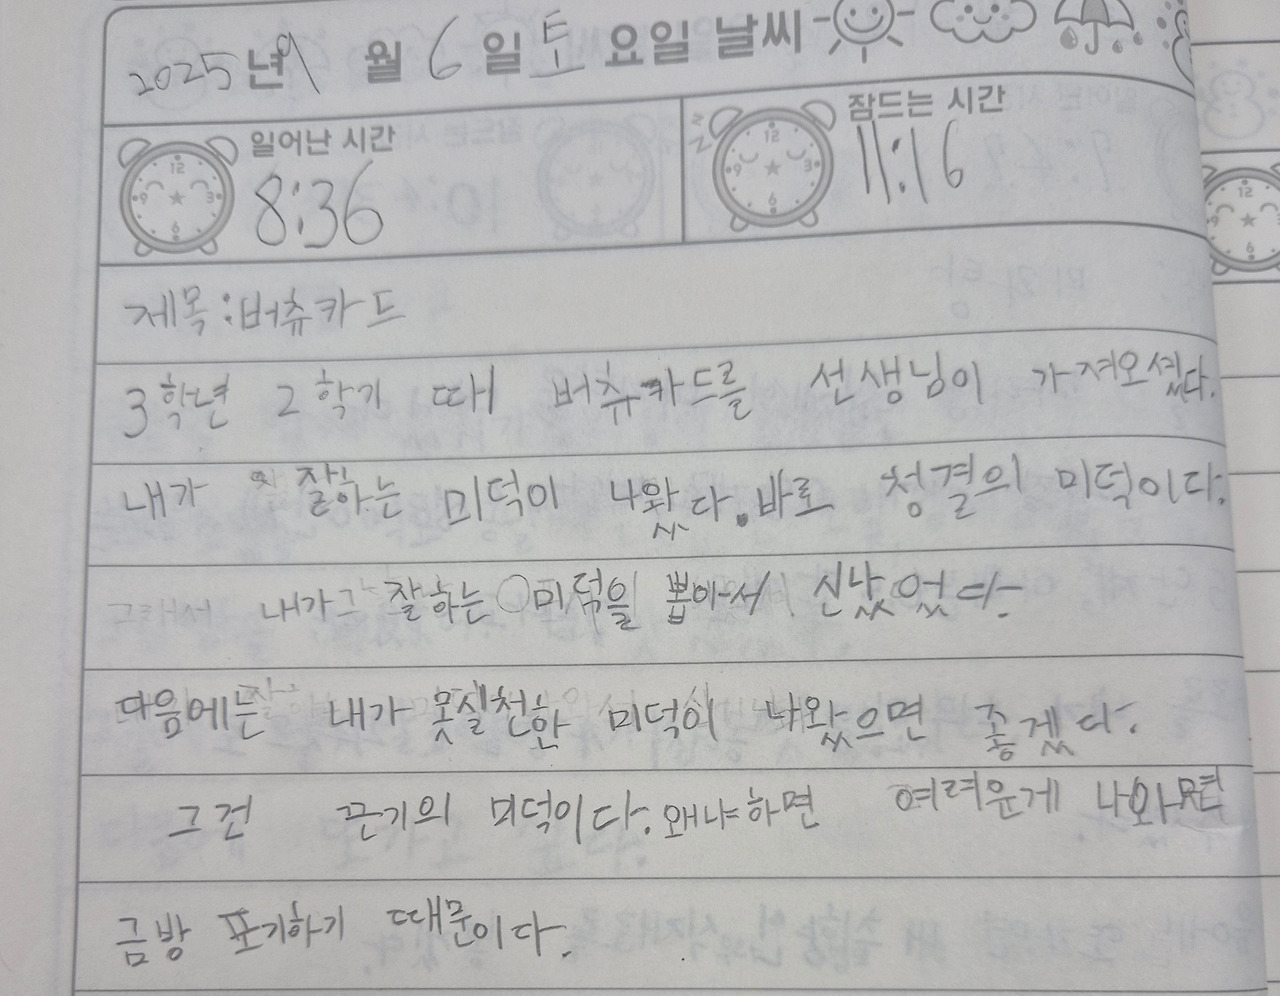 2025년 9월 6일 토요일 날씨
일어난 시간 8:36
잠드는 시간 11:16
제목:버츄카드
3학년 2학기 때 버츄카드를 선생님이 가져오셨다.
내가 잘하는 미덕이 나왔다. 바로 청결의 미덕이다.
그래서 내가 잘하는 미덕을 뽑아서 신났었다.
다음에는 내가 못실천한 미덕이 나왔으면 좋겠다.
그건 끈기의 미덕이다. 왜냐하면 여려운게 나와면
금방 포기하기 때문이다.